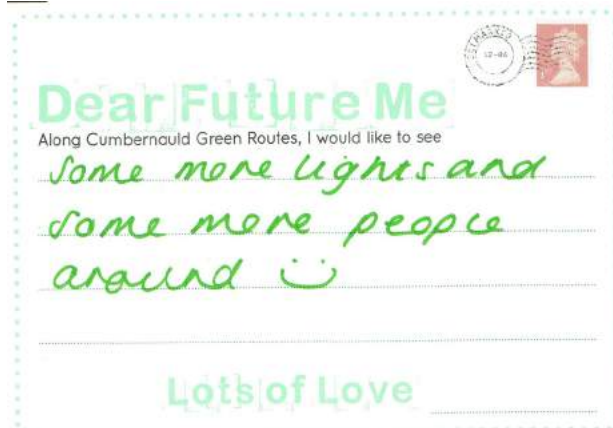 Dear Future Me
Along Cumbernauld Green Routes, I would like to see
some more lights and
some more people
around
Lots of Love